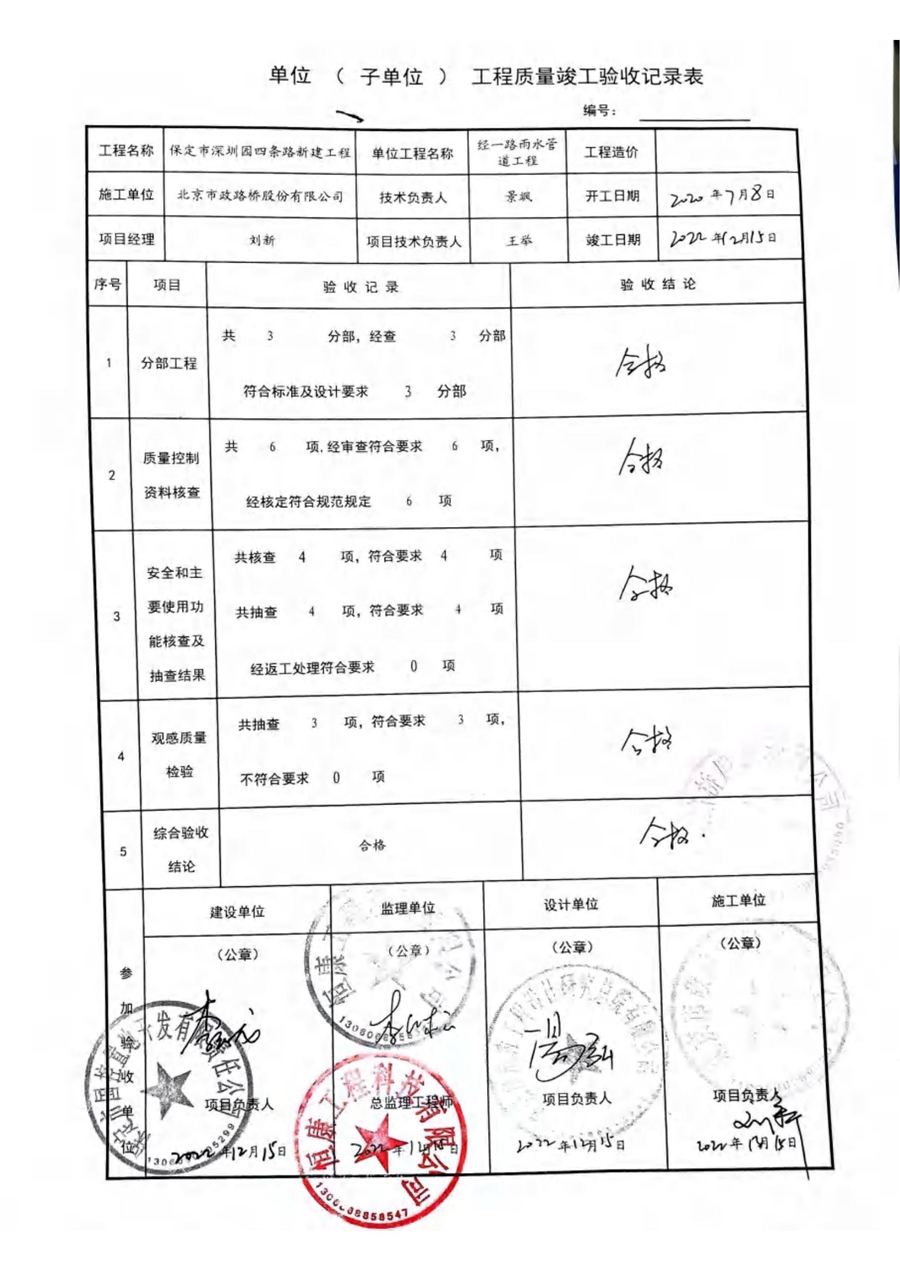 单位 （ 子单位 ） 工程质量竣工验收记录表
编号：
工程名称 保定市深圳园四条路新建工程 单位工程名称 经一路雨水管道工程 工程造价
施工单位 北京市政路桥股份有限公司 技术负责人 景飒 开工日期 2020年7月8日
项目经理 刘新 项目技术负责人 王举 竣工日期 2022年12月15日
序号 项目 验收记录 验收结论
1 分部工程
共 3 分部，经查 3 分部
符合标准及设计要求 3 分部
合格
2 质量控制资料核查
共 6 项，经审查符合要求 6 项，
经核定符合规范规定 6 项
合格
3 安全和主要使用功能核查及抽查结果
共核查 4 项，符合要求 4 项
共抽查 4 项，符合要求 4 项
经返工处理符合要求 0 项
合格
4 观感质量检验
共抽查 3 项，符合要求 3 项，
不符合要求 0 项
合格
5 综合验收结论 合格 合格.
参加验收单位
建设单位 监理单位 设计单位 施工单位
（公章） （公章） （公章） （公章）
项目负责人 总监理工程师 项目负责人 项目负责人
刘新
2022年12月15日 2022年12月15日 2022年12月15日 2022年12月15日
恒康工程科技有限公司
1306068858547